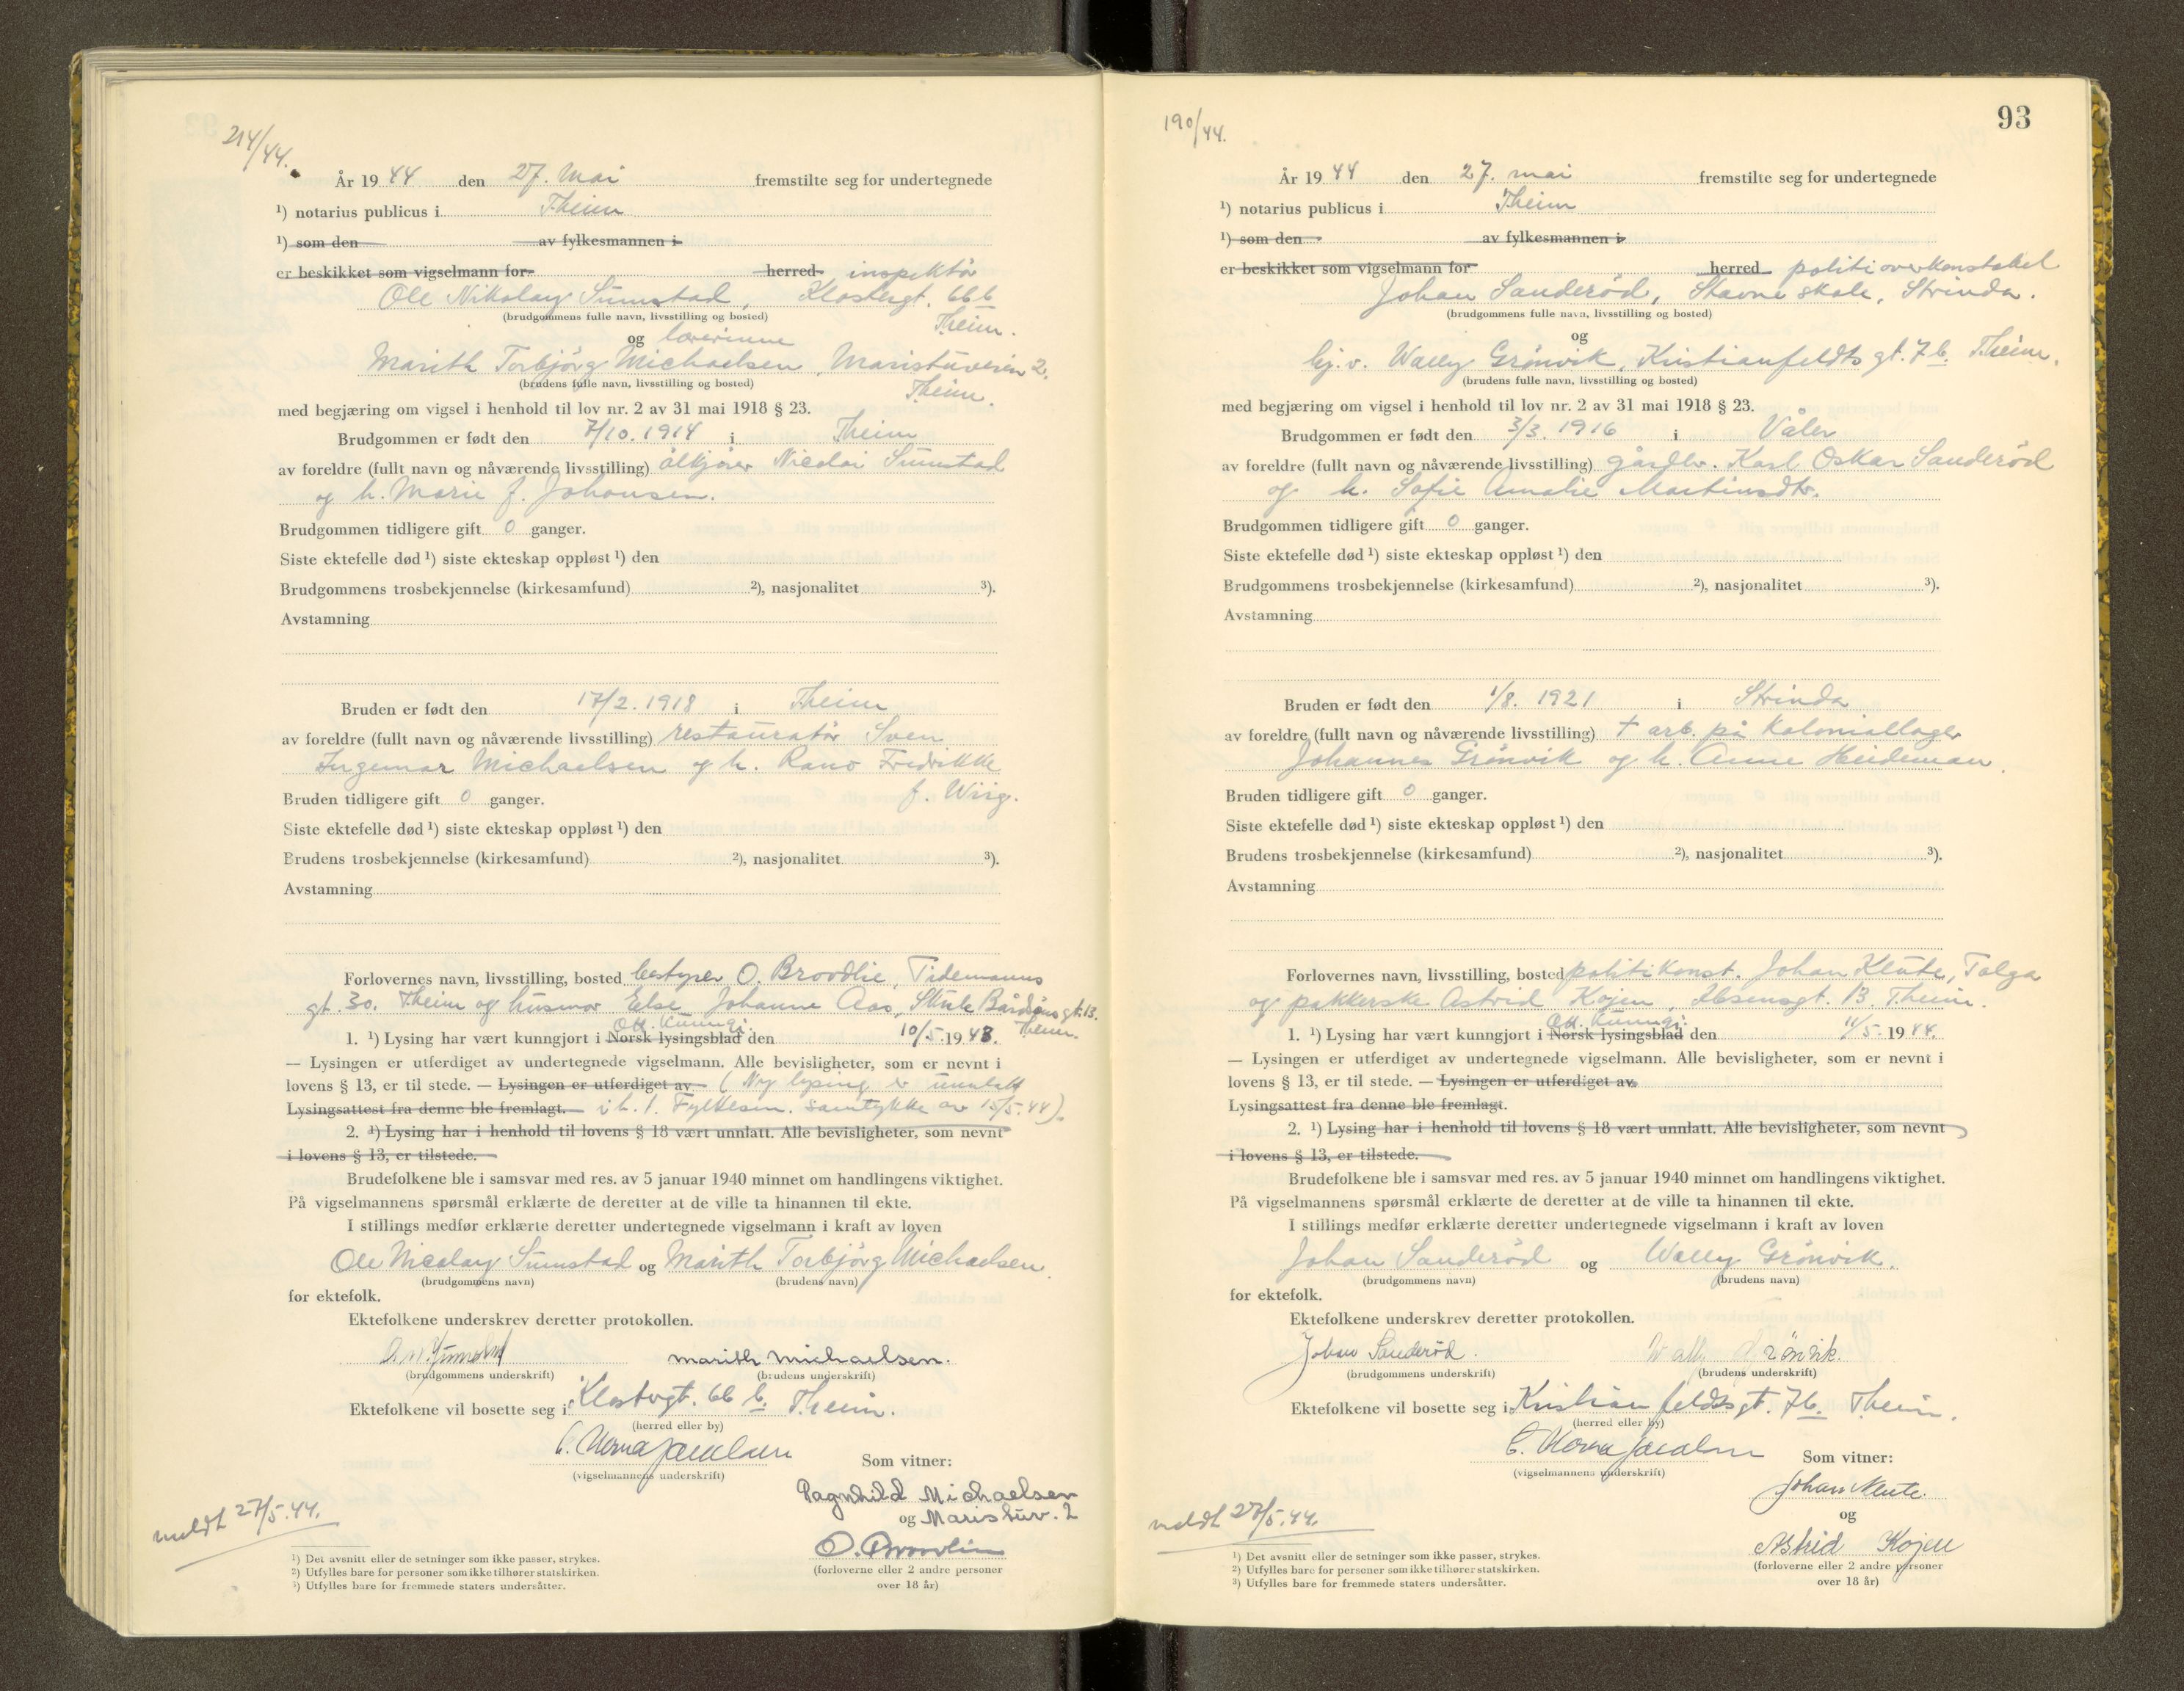 214/44.
År 1944 den 27. Mai fremstilte seg for undertegnede
¹) notarius publicus i Theim
¹) som den av fylkesmannen i
er beskikket som vigselmann for herred inspektör
Ole Nikolay Sumstad, Klostergt. 66 b
(brudgommens fulle navn, livsstilling og bosted) Theim.
og lærerinne
Marith Torbjörg Michaelsen, Maristuveien 2,
(brudens fulle navn, livsstilling og bosted) Theim.
med begjæring om vigsel i henhold til lov nr. 2 av 31 mai 1918 § 23.
Brudgommen er født den 7/10. 1914 i Theim
av foreldre (fullt navn og nåværende livsstilling) ölkjörer Nicolai Sumstad
og h. Marie f. Johansen.
Brudgommen tidligere gift 0 ganger.
Siste ektefelle død ¹) siste ekteskap oppløst ¹) den
Brudgommens trosbekjennelse (kirkesamfund) ²), nasjonalitet ³).
Avstamning
Bruden er født den 17/2. 1918 i Theim
av foreldre (fullt navn og nåværende livsstilling) restauratör Sven
Ingemar Michaelsen og h. Rano Fredrikke
Bruden tidligere gift 0 ganger. f. Wiig.
Siste ektefelle død ¹) siste ekteskap oppløst ¹) den
Brudens trosbekjennelse (kirkesamfund) ²), nasjonalitet ³).
Avstamning
Forlovernes navn, livsstilling, bosted bestyrer O. Broodlie, Tidemanns
gt. 30. Theim og husmor Else Johanne Aas, Skule Bårdsöns gt. 13.
Off. kunngj. Theim.
1. ¹) Lysing har vært kunngjort i Norsk lysingsblad den 10/5. 1943.
— Lysingen er utferdiget av undertegnede vigselmann. Alle bevisligheter, som er nevnt i
lovens § 13, er til stede. — Lysingen er utferdiget av (Ny lysing er unnlatt
Lysingsattest fra denne ble fremlagt. — i h. t. Fylkesm. samtykke av 15/5. 44).
2. ¹) Lysing har i henhold til lovens § 18 vært unnlatt. Alle bevisligheter, som nevnt
i lovens § 13, er tilstede.
Brudefolkene ble i samsvar med res. av 5 januar 1940 minnet om handlingens viktighet.
På vigselmannens spørsmål erklærte de deretter at de ville ta hinannen til ekte.
I stillings medfør erklærte deretter undertegnede vigselmann i kraft av loven
Ole Nicolay Sumstad og Marith Torbjörg Michaelsen.
(brudgommens navn) (brudens navn)
for ektefolk.
Ektefolkene underskrev deretter protokollen.
O. N. Sumstad Marith Michaelsen.
(brudgommens underskrift) (brudens underskrift)
Ektefolkene vil bosette seg i Klostergt. 66 b. Theim.
(herred eller by)
(vigselmannens underskrift) Som vitner:
Ragnhild Michaelsen
og Maristuv. 2
meldt 27/5. 44.
O. Broodlie
¹) Det avsnitt eller de setninger som ikke passer, strykes.
²) Utfylles bare for personer som ikke tilhører statskirken.
³) Utfylles bare for fremmede staters undersåtter.
(forloverne eller 2 andre personer
over 18 år)
93
190/44.
År 1944 den 27. mai fremstilte seg for undertegnede
¹) notarius publicus i Theim
¹) som den av fylkesmannen i
er beskikket som vigselmann for herred politioverkonstabel
Johan Sanderöd, Stavne skole, Strinda.
(brudgommens fulle navn, livsstilling og bosted)
og
hj. v. Wally Grönvik, Kristianfeldts gt. 7 b. Theim.
(brudens fulle navn, livsstilling og bosted)
med begjæring om vigsel i henhold til lov nr. 2 av 31 mai 1918 § 23.
Brudgommen er født den 3/3. 1916 i Våler
av foreldre (fullt navn og nåværende livsstilling) gårdbr. Karl Oskar Sanderöd
og h. Sofie Amalie Martinsdtr.
Brudgommen tidligere gift 0 ganger.
Siste ektefelle død ¹) siste ekteskap oppløst ¹) den
Brudgommens trosbekjennelse (kirkesamfund) ²), nasjonalitet ³).
Avstamning
Bruden er født den 1/8. 1921 i Strinda
av foreldre (fullt navn og nåværende livsstilling) + arb. på koloniallager
Johannes Grönvik og h. Anne Heideman.
Bruden tidligere gift 0 ganger.
Siste ektefelle død ¹) siste ekteskap oppløst ¹) den
Brudens trosbekjennelse (kirkesamfund) ²), nasjonalitet ³).
Avstamning
Forlovernes navn, livsstilling, bosted politikonst. Johan Klute, Tolga
og pakkerske Astrid Kojen, Ibsensgt. 13. Theim.
Off. kunngj.
1. ¹) Lysing har vært kunngjort i Norsk lysingsblad den 11/5. 1944.
— Lysingen er utferdiget av undertegnede vigselmann. Alle bevisligheter, som er nevnt i
lovens § 13, er til stede. — Lysingen er utferdiget av
Lysingsattest fra denne ble fremlagt.
2. ¹) Lysing har i henhold til lovens § 18 vært unnlatt. Alle bevisligheter, som nevnt
i lovens § 13, er tilstede.
Brudefolkene ble i samsvar med res. av 5 januar 1940 minnet om handlingens viktighet.
På vigselmannens spørsmål erklærte de deretter at de ville ta hinannen til ekte.
I stillings medfør erklærte deretter undertegnede vigselmann i kraft av loven
Johan Sanderöd og Wally Grönvik.
(brudgommens navn) (brudens navn)
for ektefolk.
Ektefolkene underskrev deretter protokollen.
Johan Sanderöd. Wally Grönvik.
(brudgommens underskrift) (brudens underskrift)
Ektefolkene vil bosette seg i Kristian feldts gt. 7 b. Theim.
(herred eller by)
(vigselmannens underskrift) Som vitner:
Johan Klute.
og
meldt 27/5. 44.
Astrid Kojen
¹) Det avsnitt eller de setninger som ikke passer, strykes.
²) Utfylles bare for personer som ikke tilhører statskirken.
³) Utfylles bare for fremmede staters undersåtter.
(forloverne eller 2 andre personer
over 18 år)